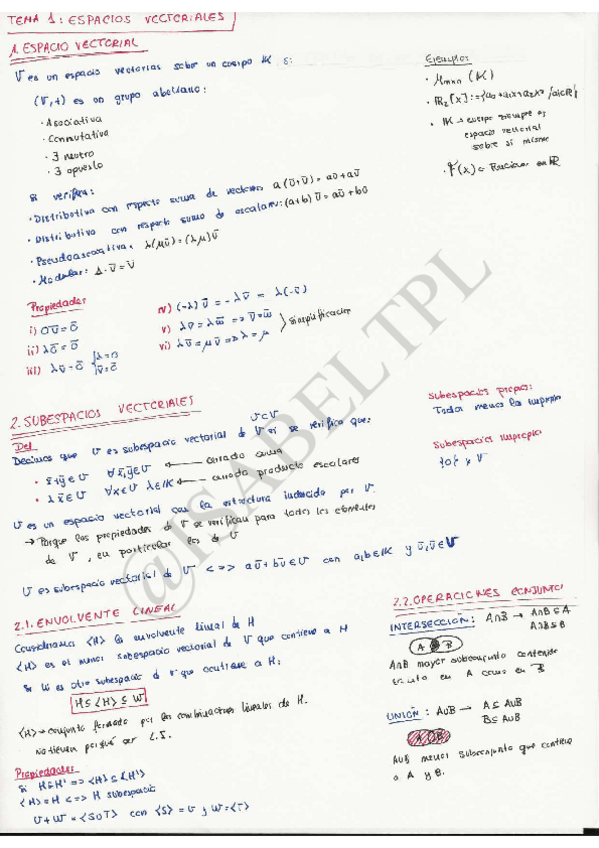 TEMA 1: ESPACIOS VECTORIALES
1. ESPACIO VECTORIAL
V es un espacio vectorial sobre un cuerpo K si:
(V,+) es un grupo abeliano:
· Asociativa
· Conmutativa
· ∃ neutro
· ∃ opuesto
Si verifica:
· Distributiva con respecto suma de vectores a(ū+v̄) = aū+av̄
· Distributiva con respecto suma de escalares: (a+b)v̄ = av̄+bv̄
· Pseudoasociativa, λ(μū) = (λμ)ū
· Modular: 1·v̄ = v̄
Ejemplos
· Mmxn (K)
· R2[x] := {a0+a1x+a2x² /ai∈R}
· K → cuerpo siempre es
espacio vectorial
sobre sí mismo
· F(x) = Funciones en R
Propiedades
i) 0v̄ = ō
ii) λō = ō
iii) λv̄ = ō {λ=0 v̄=ō
iv) (-λ)v̄ = -λv̄ = λ(-v̄)
v) λv̄ = λw̄ => v̄=w̄
vi) λv̄ = μv̄ => λ=μ
Simplificación
2. SUBESPACIOS VECTORIALES
Def
U⊂V
Decimos que U es subespacio vectorial de V si se verifica que:
· x̄+ȳ∈U ∀x̄,ȳ∈U ← cerrado suma
· λx̄∈U ∀x∈U λ∈K ← cerrado producto escalares
U es un espacio vectorial con la estructura inducida por V.
→ Porque las propiedades de V se verifican para todos los elementos
de V, en particular los de U
U es subespacio vectorial de V <=> aū+bv̄∈U con a,b∈K y ū,v̄∈U
Subespacios propios:
Todos menos los impropios
Subespacios impropios
{0} y V
2.1. ENVOLVENTE LINEAL
Consideramos <H> la envolvente lineal de H
<H> es el menor subespacio vectorial de V que contiene a H
Si W es otro subespacio de V que contiene a H:
H⊆<H>⊆W
<H> → conjunto formado por las combinaciones lineales de H.
No tienen por qué ser L.I.
Propiedades
Si H⊆H' => <H>⊆<H'>
<H>=H <=> H subespacio
U+W = <S∪T> con <S>=U y W=<T>
2.2. OPERACIONES CONJUNTO
INTERSECCIÓN: A∩B → A∩B⊆A
A∩B⊆B
A B
A∩B mayor subconjunto contenido
tanto en A como en B
UNIÓN: A∪B → A⊆A∪B
B⊆A∪B
A B
A∪B menor subconjunto que contiene
a A y B.
@ISABELTPL